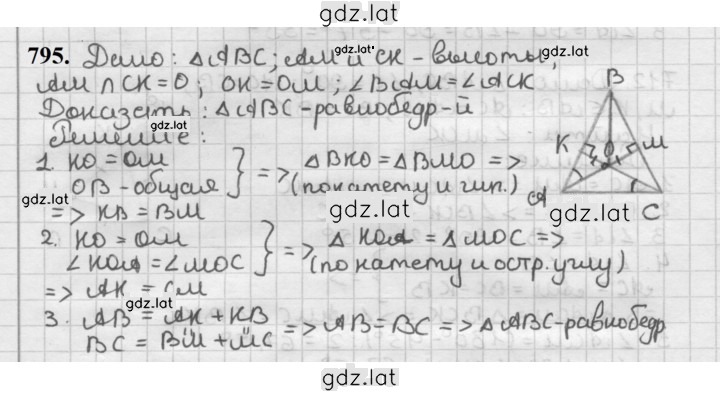 gdz.lat
795. Дано: △ABC; AM и CK - высоты,
AM ∩ CK = O; OK = OM; ∠BAM = ∠ACK
gdz.lat
Доказать: △ABC - равнобедр-й
Решение:
1. KO = OM
OB - общая } => △BKO = △BMO =>
(по катету и гип.)
=> KB = BM
gdz.lat
2. KO = OM
∠KOA = ∠MOC } => △KOA = △MOC =>
(по катету и остр. углу)
=> AK = CM
gdz.lat
3. AB = AK + KB
BC = BM + MC => AB = BC => △ABC - равнобедр
B
K
O
M
A
gdz.lat
C
gdz.lat